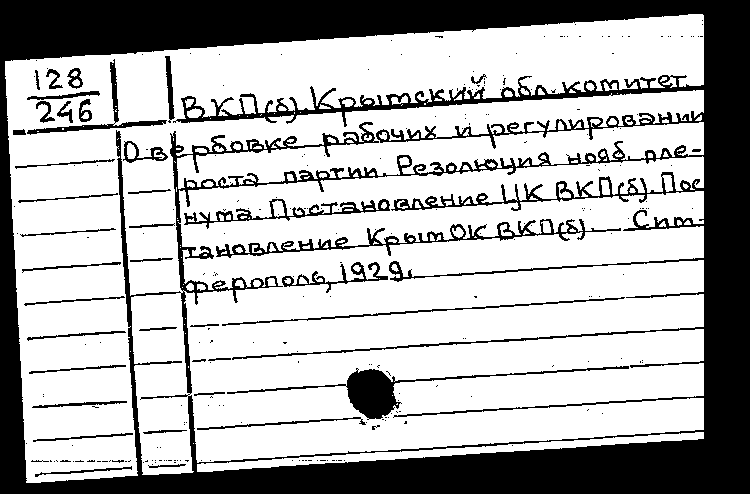 128
246
ВКП(б). Крымский обл. комитет
О вербовке рабочих и регулировании
роста партии. Резолюция нояб. пле-
нума. Постановление ЦК ВКП(б). Пос
тановление КрымОК ВКП(б). Сим-
ферополь, 1929.